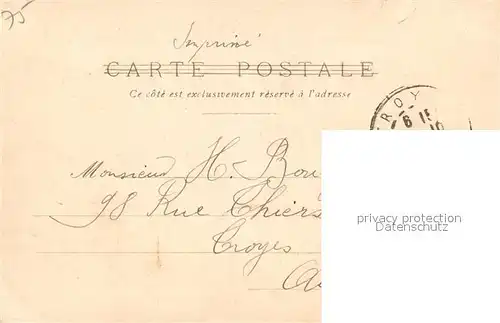 75
Imprimé
CARTE POSTALE
Ce côté est exclusivement réservé à l'adresse
TROY
6 15
10
Monsieur H. Bou
98 Rue Thiers
Troyes
Au
privacy protection
Datenschutz